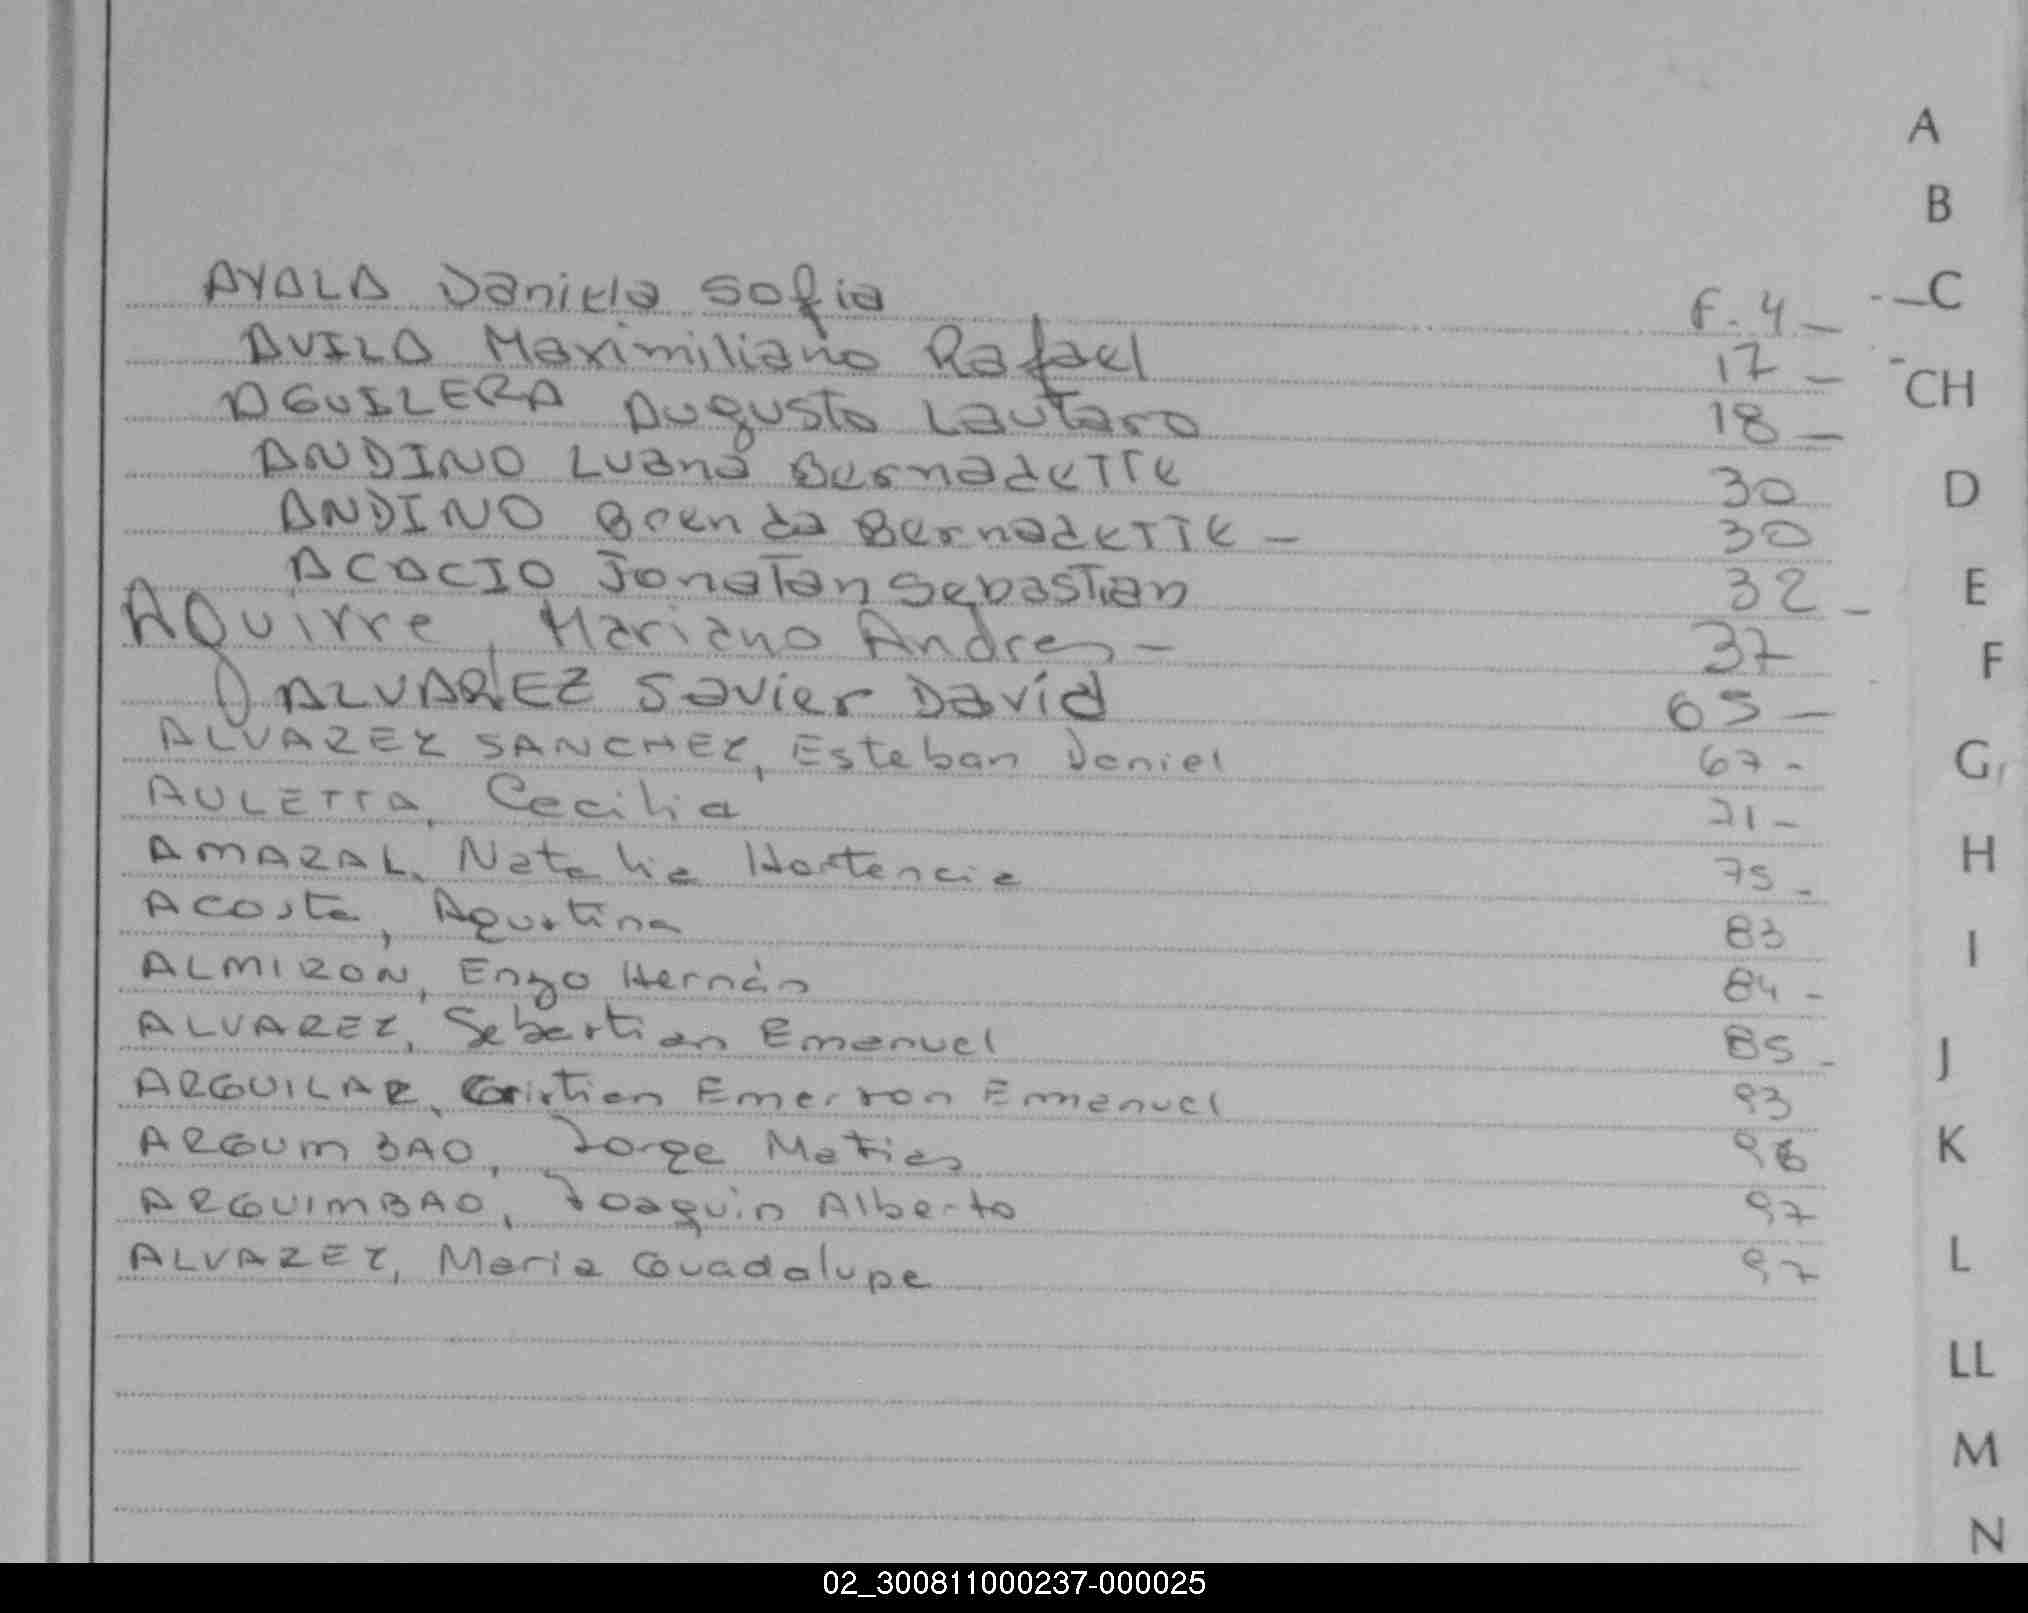 AYALA Daniela Sofia F. 4 –
AVILA Maximiliano Rafael 17 –
AGUILERA Augusto Lautaro 18 –
ANDINO Luana Bernadette 30
ANDINO Brenda Bernadette – 30
ACACIO Jonatan Sebastian 32 –
AGuirre, Mariano Andres – 37
ALVAREZ Javier David 65 –
ALVAREZ SANCHEZ, Esteban Daniel 67 -
AULETTA, Cecilia 71 -
AMARAL, Natalia Hortencia 75 -
ACOSta, Agustina 83
ALMIRON, Enzo Hernán 84 -
ALVAREZ, Sebastian Emanuel 85 -
ARGUILAR, Cristian Emerson Emmanuel 93
ARGUMBAO, Jorge Matias 96
ARGUIMBAO, Joaquin Alberto 97
ALVAREZ, Maria Guadalupe 97
A
B
C
CH
D
E
F
G
H
I
J
K
L
LL
M
N
02_300811000237-000025